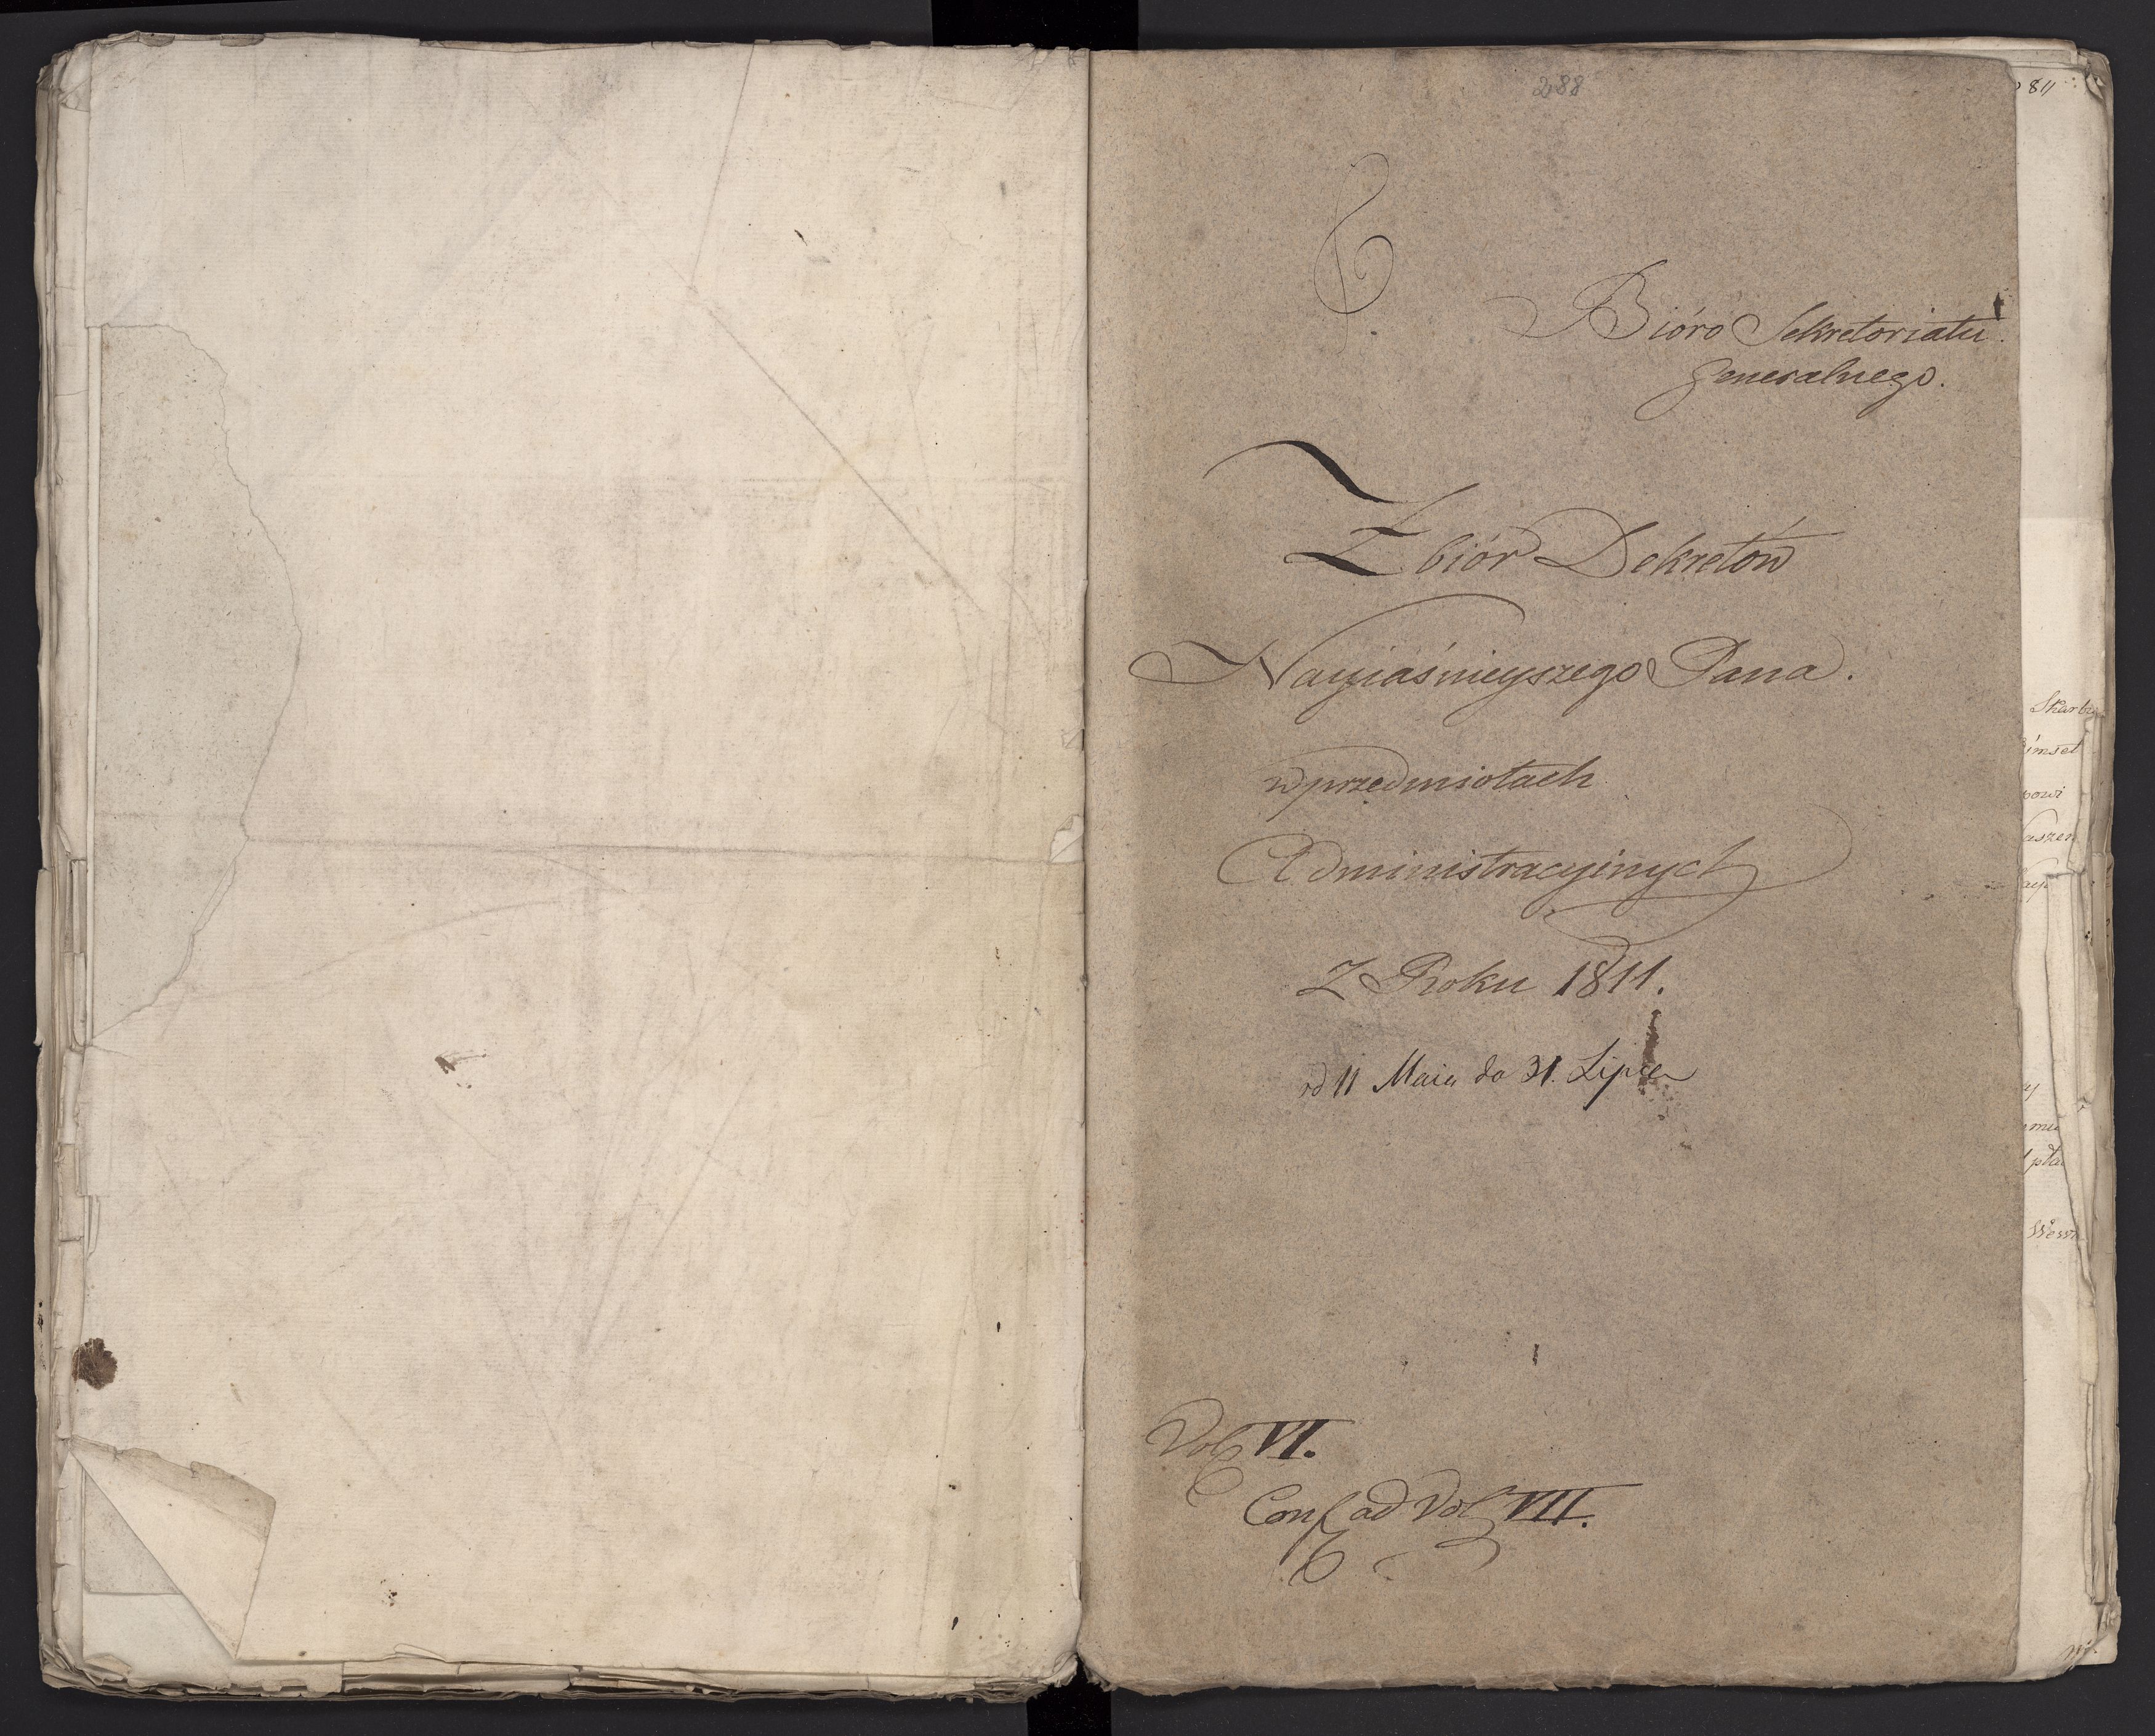 288
Bióro Sekretoriatu
Generalnego.
Zbiór Dekretów
Nayiaśnieyszego Pana.
w przedmiotach
Administracyinych
Z Roku 1811.
od 11 Maia do 31. Lipca
Vol VI.
Conf ad Vol VII.
811
Skarbu
powi